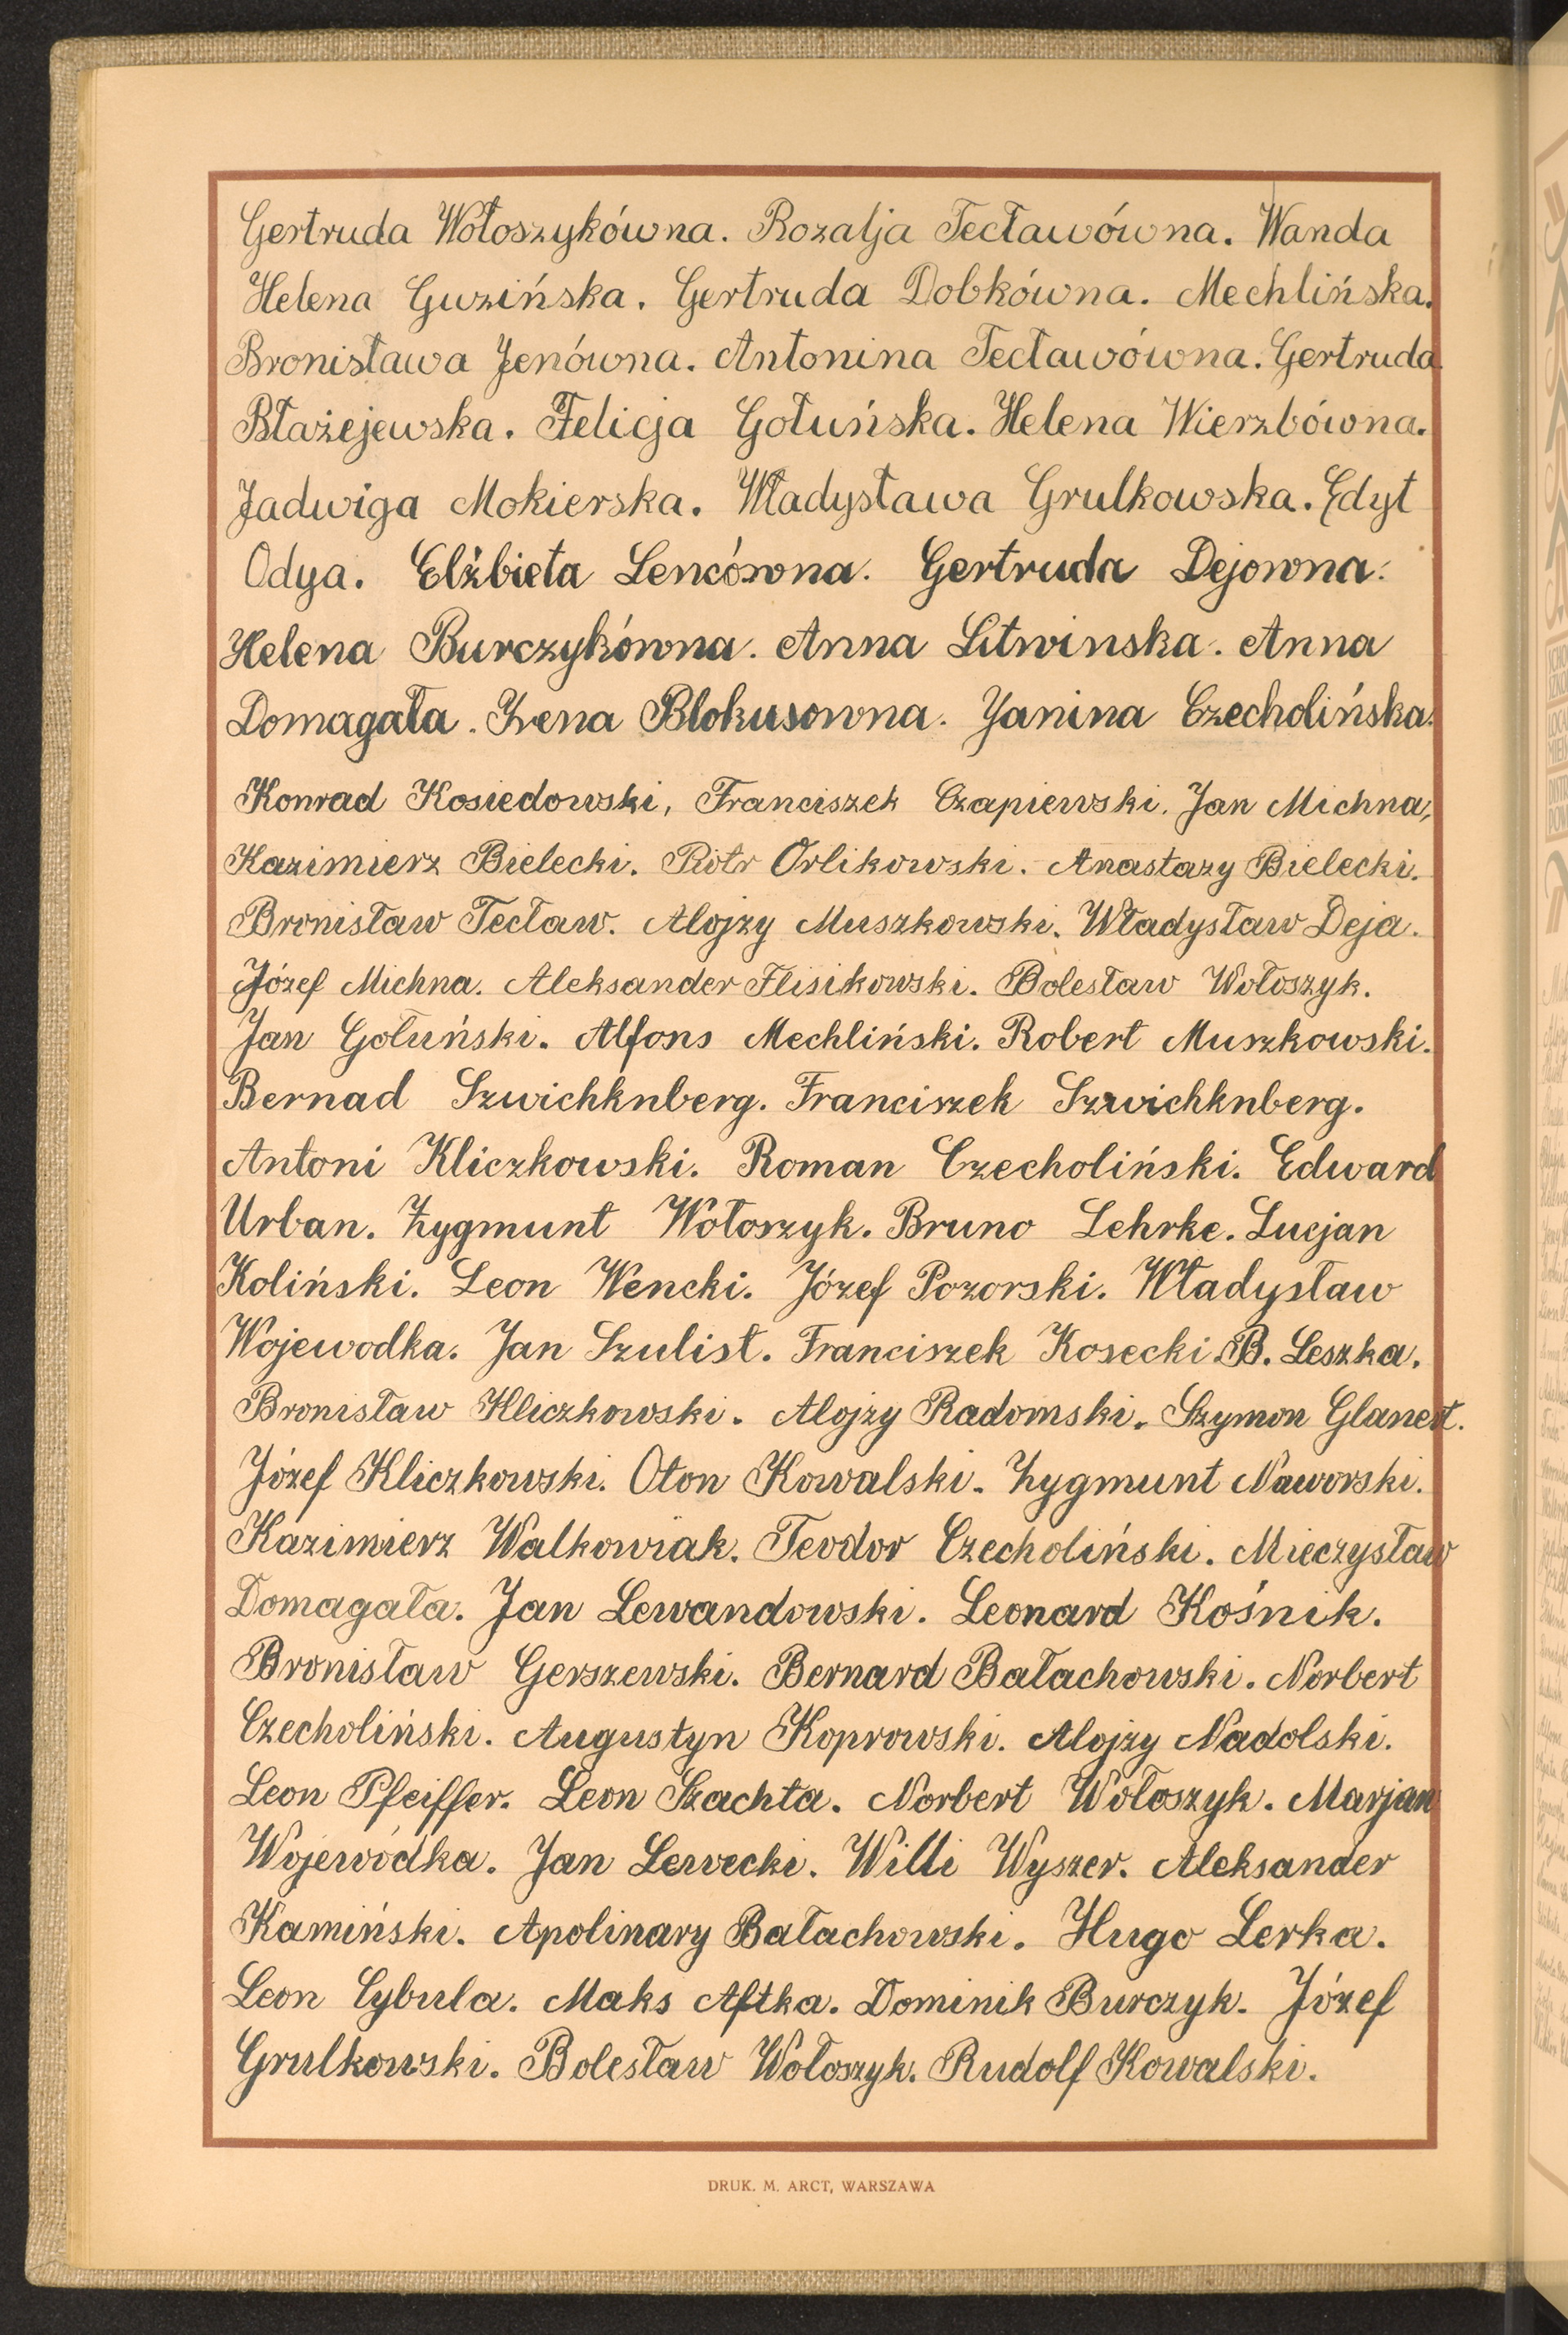 Gertruda Wołoszykówna. Rozalja Tecławówna. Wanda
Helena Guzińska. Gertruda Dobkówna. Mechlińska.
Bronisława Jenówna. Antonina Tecławówna. Gertruda
Błażejewska. Felicja Gołuńska. Helena Wierzbówna.
Jadwiga Mokierska. Władysława Grulkowska. Edyt
Odya. Elżbieta Lencówna. Gertruda Dejowna.
Helena Burczykówna. Anna Litwinska. Anna
Domagała. Irena Blokusowna. Janina Czecholińska.
Konrad Kosiedowski, Franciszek Czapiewski, Jan Michna,
Kazimierz Bielecki. Piotr Orlikowski. Anastazy Bielecki.
Bronisław Tecław. Alojzy Muszkowski. Władysław Deja.
Józef Michna. Aleksander Flisikowski. Bolesław Wołoszyk.
Jan Gołuński. Alfons Mechliński. Robert Muszkowski.
Bernad Szwichknberg. Franciszek Szwichknberg.
Antoni Kliczkowski. Roman Czecholiński. Edward
Urban. Zygmunt Wołoszyk. Bruno Lehrke. Lucjan
Koliński. Leon Wencki. Józef Pozorski. Władysław
Wojewodka. Jan Szulist. Franciszek Kosecki. B. Leszka.
Bronisław Kliczkowski. Alojzy Radomski. Szymon Glanert.
Józef Kliczkowski. Oton Kowalski. Zygmunt Naworski.
Kazimierz Walkowiak. Teodor Czecholiński. Mieczysław
Domagała. Jan Lewandowski. Leonard Kośnik.
Bronisław Gerszewski. Bernard Bałachowski. Norbert
Czecholiński. Augustyn Koprowski. Alojzy Nadolski.
Leon Pfeiffer. Leon Szachta. Norbert Wołoszyk. Marjan
Wojewódka. Jan Lewecki. Willi Wyszer. Aleksander
Kamiński. Apolinary Bałachowski. Hugo Lerka.
Leon Cybula. Maks Aftka. Dominik Burczyk. Józef
Grulkowski. Bolesław Wołoszyk. Rudolf Kowalski.
DRUK. M. ARCT, WARSZAWA